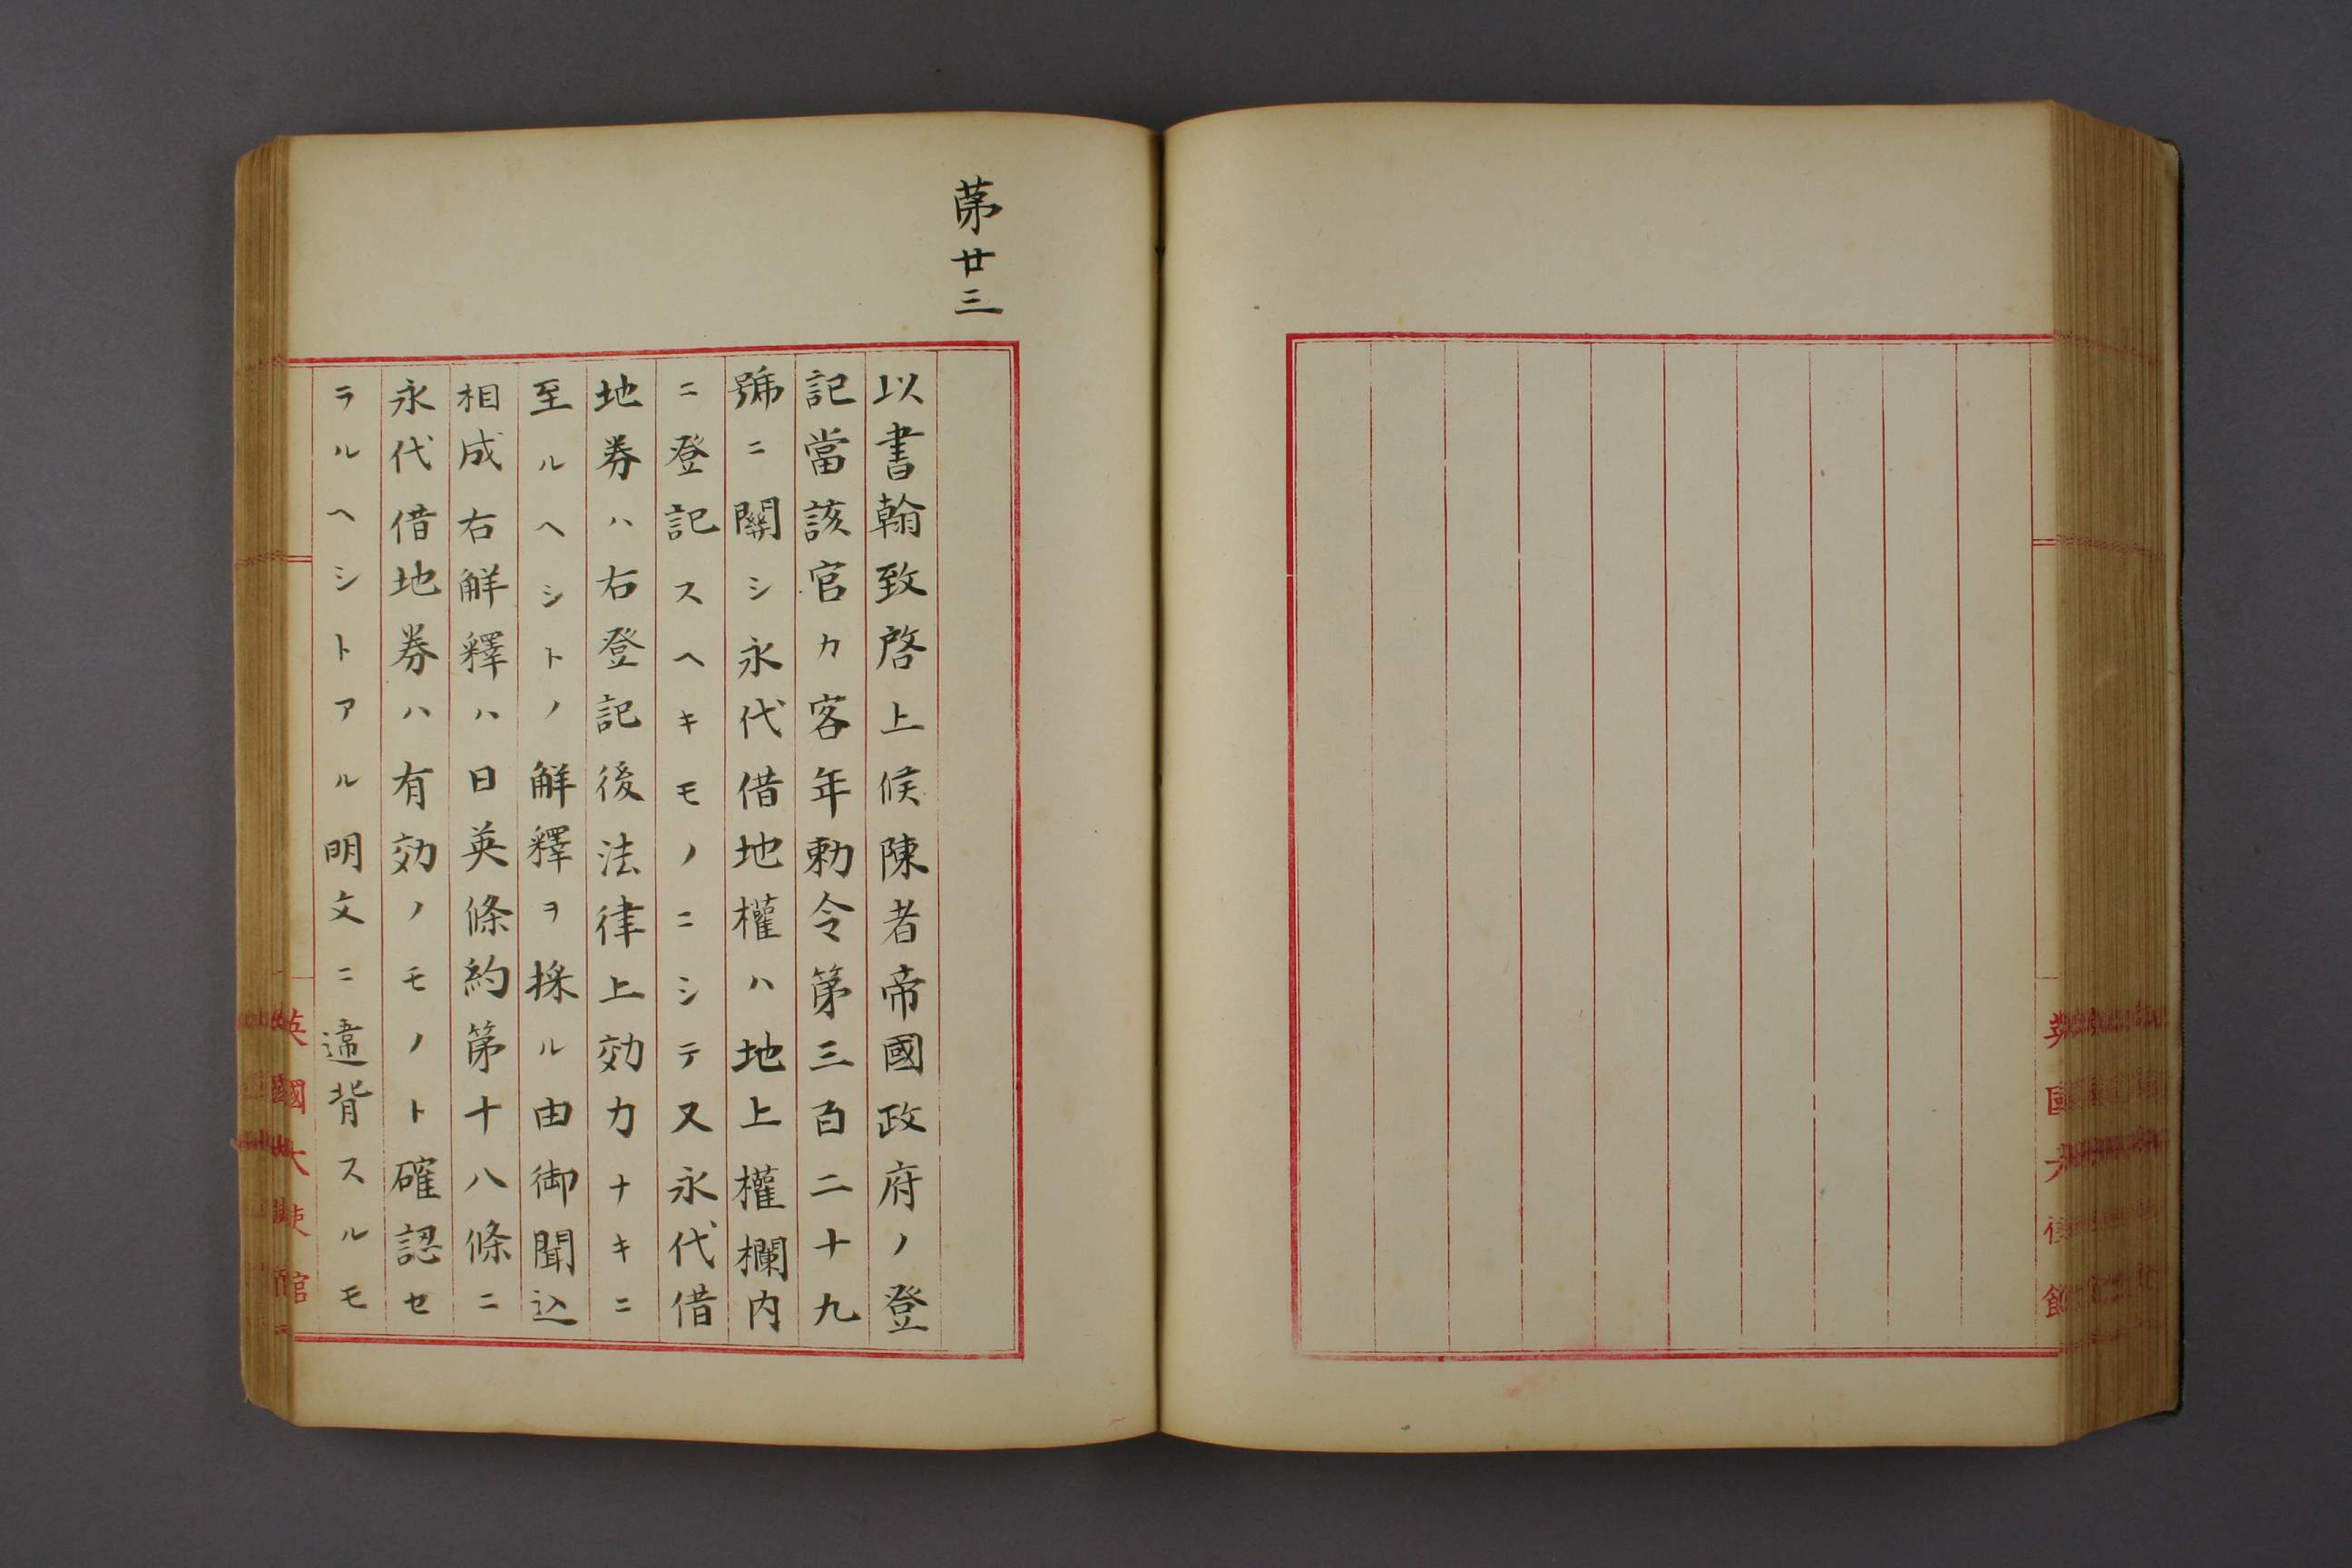 第廿三
以書翰致啓上候陳者帝國政府ノ登
記當該官カ客年勅令第三百二十九
號ニ關シ永代借地權ハ地上權欄内
ニ登記スヘキモノニシテ又永代借
地券ハ右登記後法律上効力ナキニ
至ルヘシトノ解釋ヲ採ル由御聞込
相成右解釋ハ日英條約第十八條ニ
永代借地券ハ有効ノモノト確認セ
ラルヘシトアル明文ニ違背スルモ
英國大使館